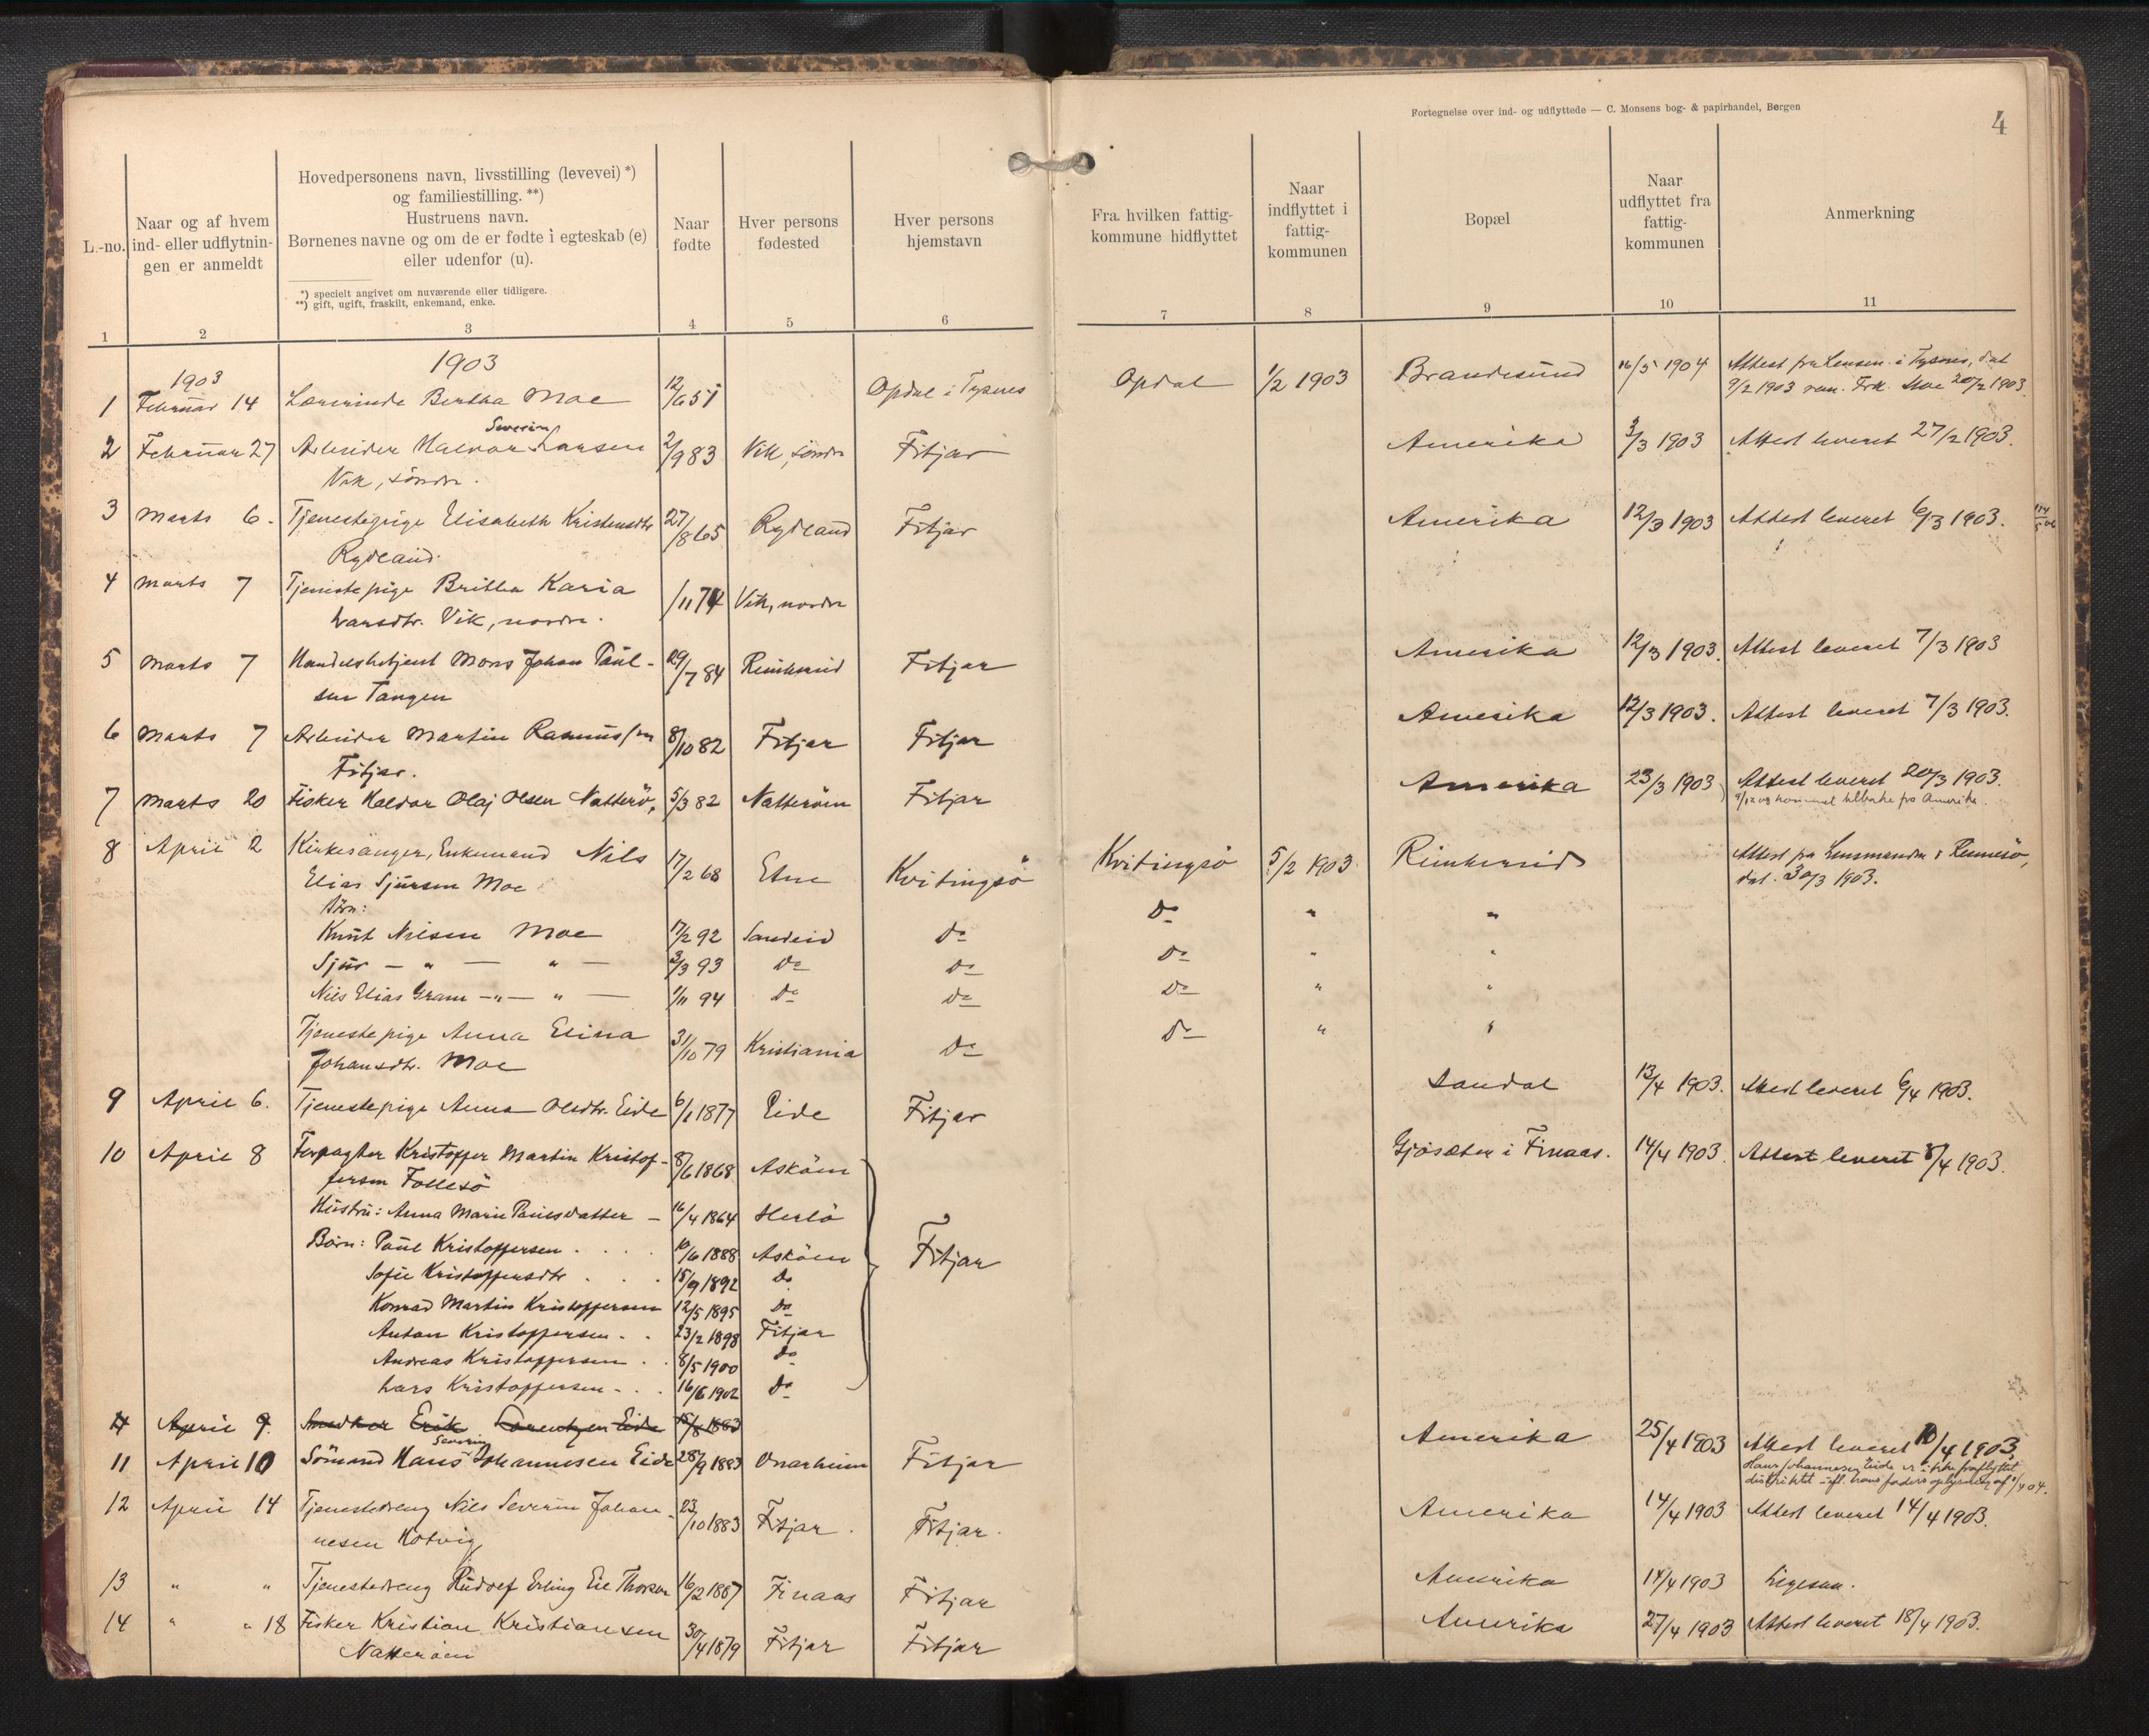 Fortegnelse over ind- og udflyttede — C. Monsens bog- & papirhandel, Bergen
4
L.-no.
Naar og af hvem
ind- eller udflytnin-
gen er anmeldt
Hovedpersonens navn, livsstilling (levevei) *)
og familiestilling. **)
Hustruens navn.
Børnenes navne og om de er fødte i egteskab (e)
eller udenfor (u).
*) specielt angivet om nuværende eller tidligere.
**) gift, ugift, fraskilt, enkemand, enke.
Naar
fødte
Hver persons
fødested
Hver persons
hjemstavn
Fra hvilken fattig-
kommune hidflyttet
Naar
indflyttet i
fattig-
kommunen
Bopæl
Naar
udflyttet fra
fattig-
kommunen
Anmerkning
1 2 3 4 5 6 7 8 9 10 11
1903 1903
1 Februar 14 Lærerinde Bertha Moe 12/6 51 Opdal i Tysnes Opdal 1/2 1903 Brandesund 16/5 1904 Attest fra Lensm. i Tysnes, dat
9/2 1903 Frk. Moe 20/2 1903.
Severin
2 Februar 27 Arbeider Halvor Larsen 2/9 83 Vik, søndre Fitjar Amerika 3/3 1903 Attest leveret 27/2 1903.
Vik, søndre.
3 Marts 6. Tjenestepige Elisabeth Kristensdtr 27/8 65 Rydland Fitjar Amerika 12/3 1903 Attest leveret 6/3 1903.
Rydland.
4 Marts 7 Tjenestepige Britha Karia /11 74 Vik, nordre
Larsdtr. Vik, nordre.
Amerika 12/3 1903. Attest leveret 7/3 1903
5 Marts 7 Handelsbetjent Mons Johan Paul- 29/7 84 Rimbereid Fitjar
sen Tangen
Amerika 12/3 1903. Attest leveret 7/3 1903.
6 Marts 7 Arbeider Martin Rasmussen 8/10 82 Fitjar Fitjar
Fitjar.
Amerika 23/3 1903 Attest leveret 20/3 1903.
kommet tilbake fra Amerika.
7 Marts 20 Fisker Haldor Olaj Olsen Natterö, 5/3 82 Natteröen Fitjar
8 April 2 Kirkesanger, Enkemand Nils 17/2 68 Etne Kvitingsö Kvitingsö 5/2 1903 Rimbereid Attest fra Lensmanden i Rennesö,
Elias Sjursen Moe dat. 30/3 1903.
Börn:
Knut Nilsen Moe 17/2 92 Sandeid Do Do " "
Sjur — " — " — 3/3 93 Do Do Do " "
Nils Elias Gram — " — " — 1/11 94 Do Do Do " "
Tjenestepige Anna Elina 31/10 79 Kristiania Do Do " "
Johansdtr. Moe
9 April 6. Tjenestepige Anna Olsdtr. Eide 6/1 1877 Eide Fitjar Sandal 13/4 1903. Attest leveret 6/4 1903.
10 April 8 Forpagter Kristoffer Martin Kristof- 8/6 1868 Asköen Gjösæter i Finaas. 14/4 1903. Attest leveret 8/4 1903.
fersen Follesö
Hustru: Anna Marie Paulsdatter — 16/4 1864 Herlö
Börn: Paul Kristoffersen . . . . 10/6 1888 Asköen Fitjar
Sofie Kristoffersdtr . . . 15/9 1892 Do
Konrad Martin Kristoffersen 12/5 1895 Do
Anton Kristoffersen . . 23/2 1898 Fitjar
Andreas Kristoffersen . . 8/5 1900 Do
Lars Kristoffersen . . . 16/6 1902 Do
11 April 9. Snedker Erik Lorentzen Eide 15/8 1883
Severin
11 April 10 Sömand Hans Johannesen Eide 28/9 1883 Onarheim Fitjar Amerika 25/4 1903 Attest leveret 10/4 1903.
Hans Johannesen Eide er ikke fraflyttet
distriktet ifl. hans faders oplysning af 04.
12 April 14 Tjenestedreng Nils Severin Johan- 23/10 1883 Fitjar. Fitjar. Amerika 14/4 1903 Attest leveret 14/4 1903.
nesen Hotvig
13 " " Tjenestedreng Rudolf Erling Eie Thorsen 16/2 1887 Finaas Fitjar Amerika 14/4 1903 Ligesaa.
14 " " 18 Fisker Kristian Kristiansen 30/4 1879 Fitjar Fitjar Amerika 27/4 1903 Attest leveret 18/4 1903.
Natteröen